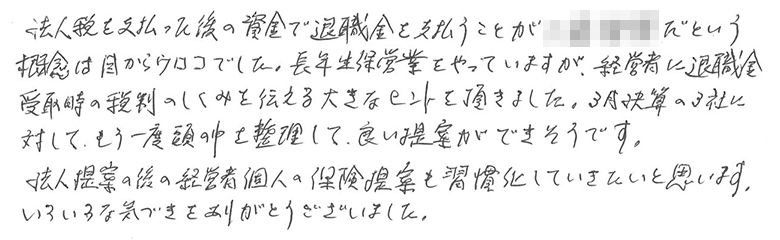 法人税を支払った後の資金で退職金を支払うことが だという
概念は目からウロコでした。長年生保営業をやっていますが、経営者に退職金
受取時の税制のしくみを伝える大きなヒントを頂きました。3月決算の3社に
対して、もう一度頭の中を整理して、良い提案ができそうです。
法人提案の後の経営者個人の保険提案も習慣化していきたいと思います。
いろいろな気づきをありがとうございました。